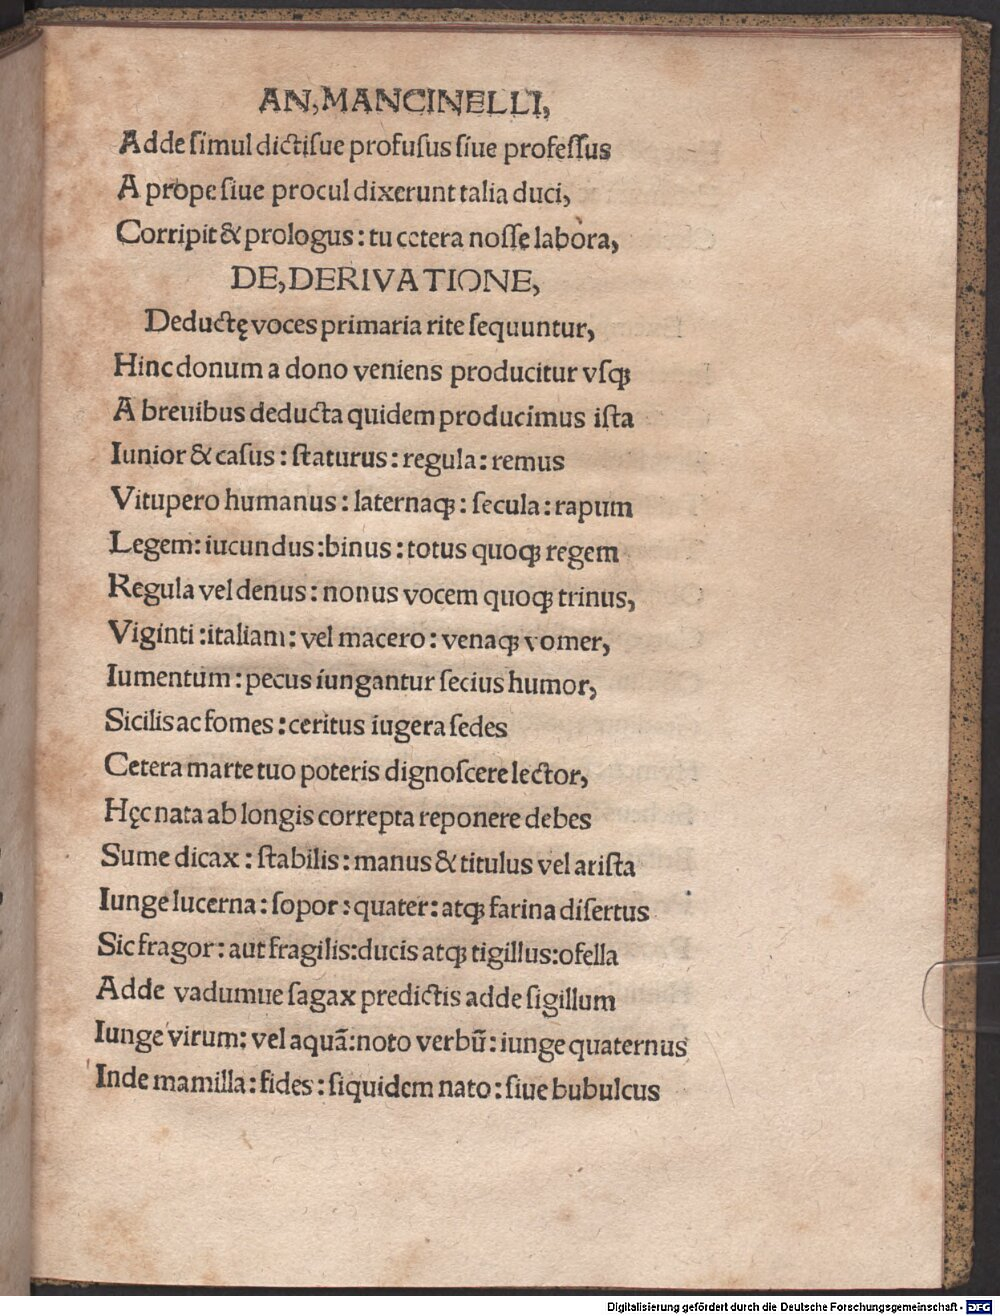 AN,MANCINELLI,
Adde ſimul dictiſue profuſus ſiue profeſſus
A prope ſiue procul dixerunt talia duci,
Corripit & prologus : tu cetera noſſe labora,
DE,DERIVATIONE,
Deductę voces primaria rite ſequuntur,
Hinc donum a dono veniens producitur vſqꝫ
A breuibus deducta quidem producimus iſta
Iunior & caſus : ſtaturus : regula : remus
Vitupero humanus : laternaqꝫ : ſecula : rapum
Legem : iucundus : binus : totus quoqꝫ regem
Regula vel denus : nonus vocem quoqꝫ trinus,
Viginti : italiam : vel macero : venaqꝫ vomer,
Iumentum : pecus iungantur ſecius humor,
Sicilis ac fomes : ceritus iugera ſedes
Cetera marte tuo poteris dignoſcere lector,
Hęc nata ab longis correpta reponere debes
Sume dicax : ſtabilis : manus & titulus vel ariſta
Iunge lucerna : ſopor : quater : atqꝫ farina diſertus
Sic fragor : aut fragilis : ducis atqꝫ tigillus : ofella
Adde vadumue ſagax predictis adde ſigillum
Iunge virum : vel aquã : noto verbũ : iunge quaternus
Inde mamilla : fides : ſiquidem nato : ſiue bubulcus
Digitalisierung gefördert durch die Deutsche Forschungsgemeinschaft - DFG